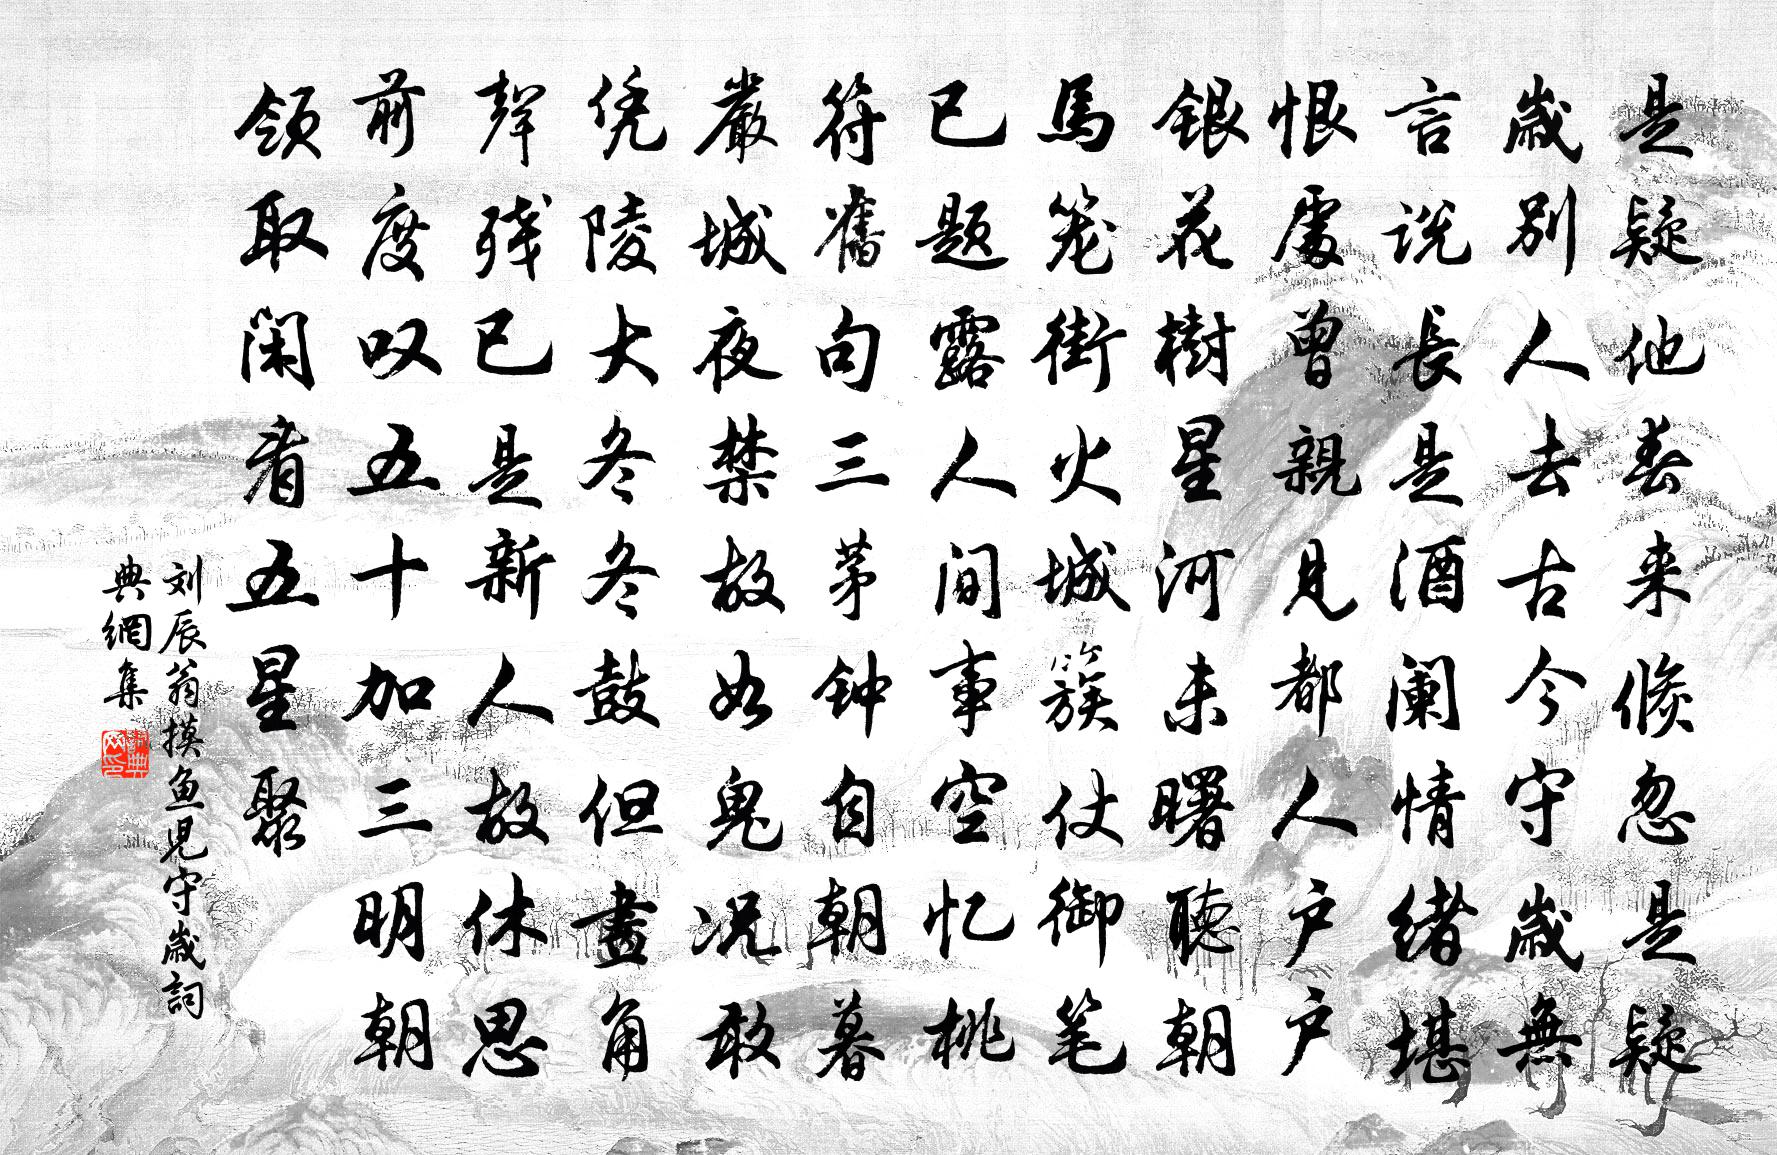 是疑他春来倏忽是疑
歲别人去古今守歲無
言说長是酒阑情緒堪
恨處曾親見都人户户
銀花樹星河未曙聽朝
馬笼街火城簇仗御笔
已题露人间事空忆桃
符舊句三茅钟自朝暮
嚴城夜禁故如鬼况敢
凭陵大冬冬鼓但畫角
聲残已是新人故休思
前度叹五十加三明朝
领取闲看五星聚
刘辰翁摸鱼児守歲詞
典網集